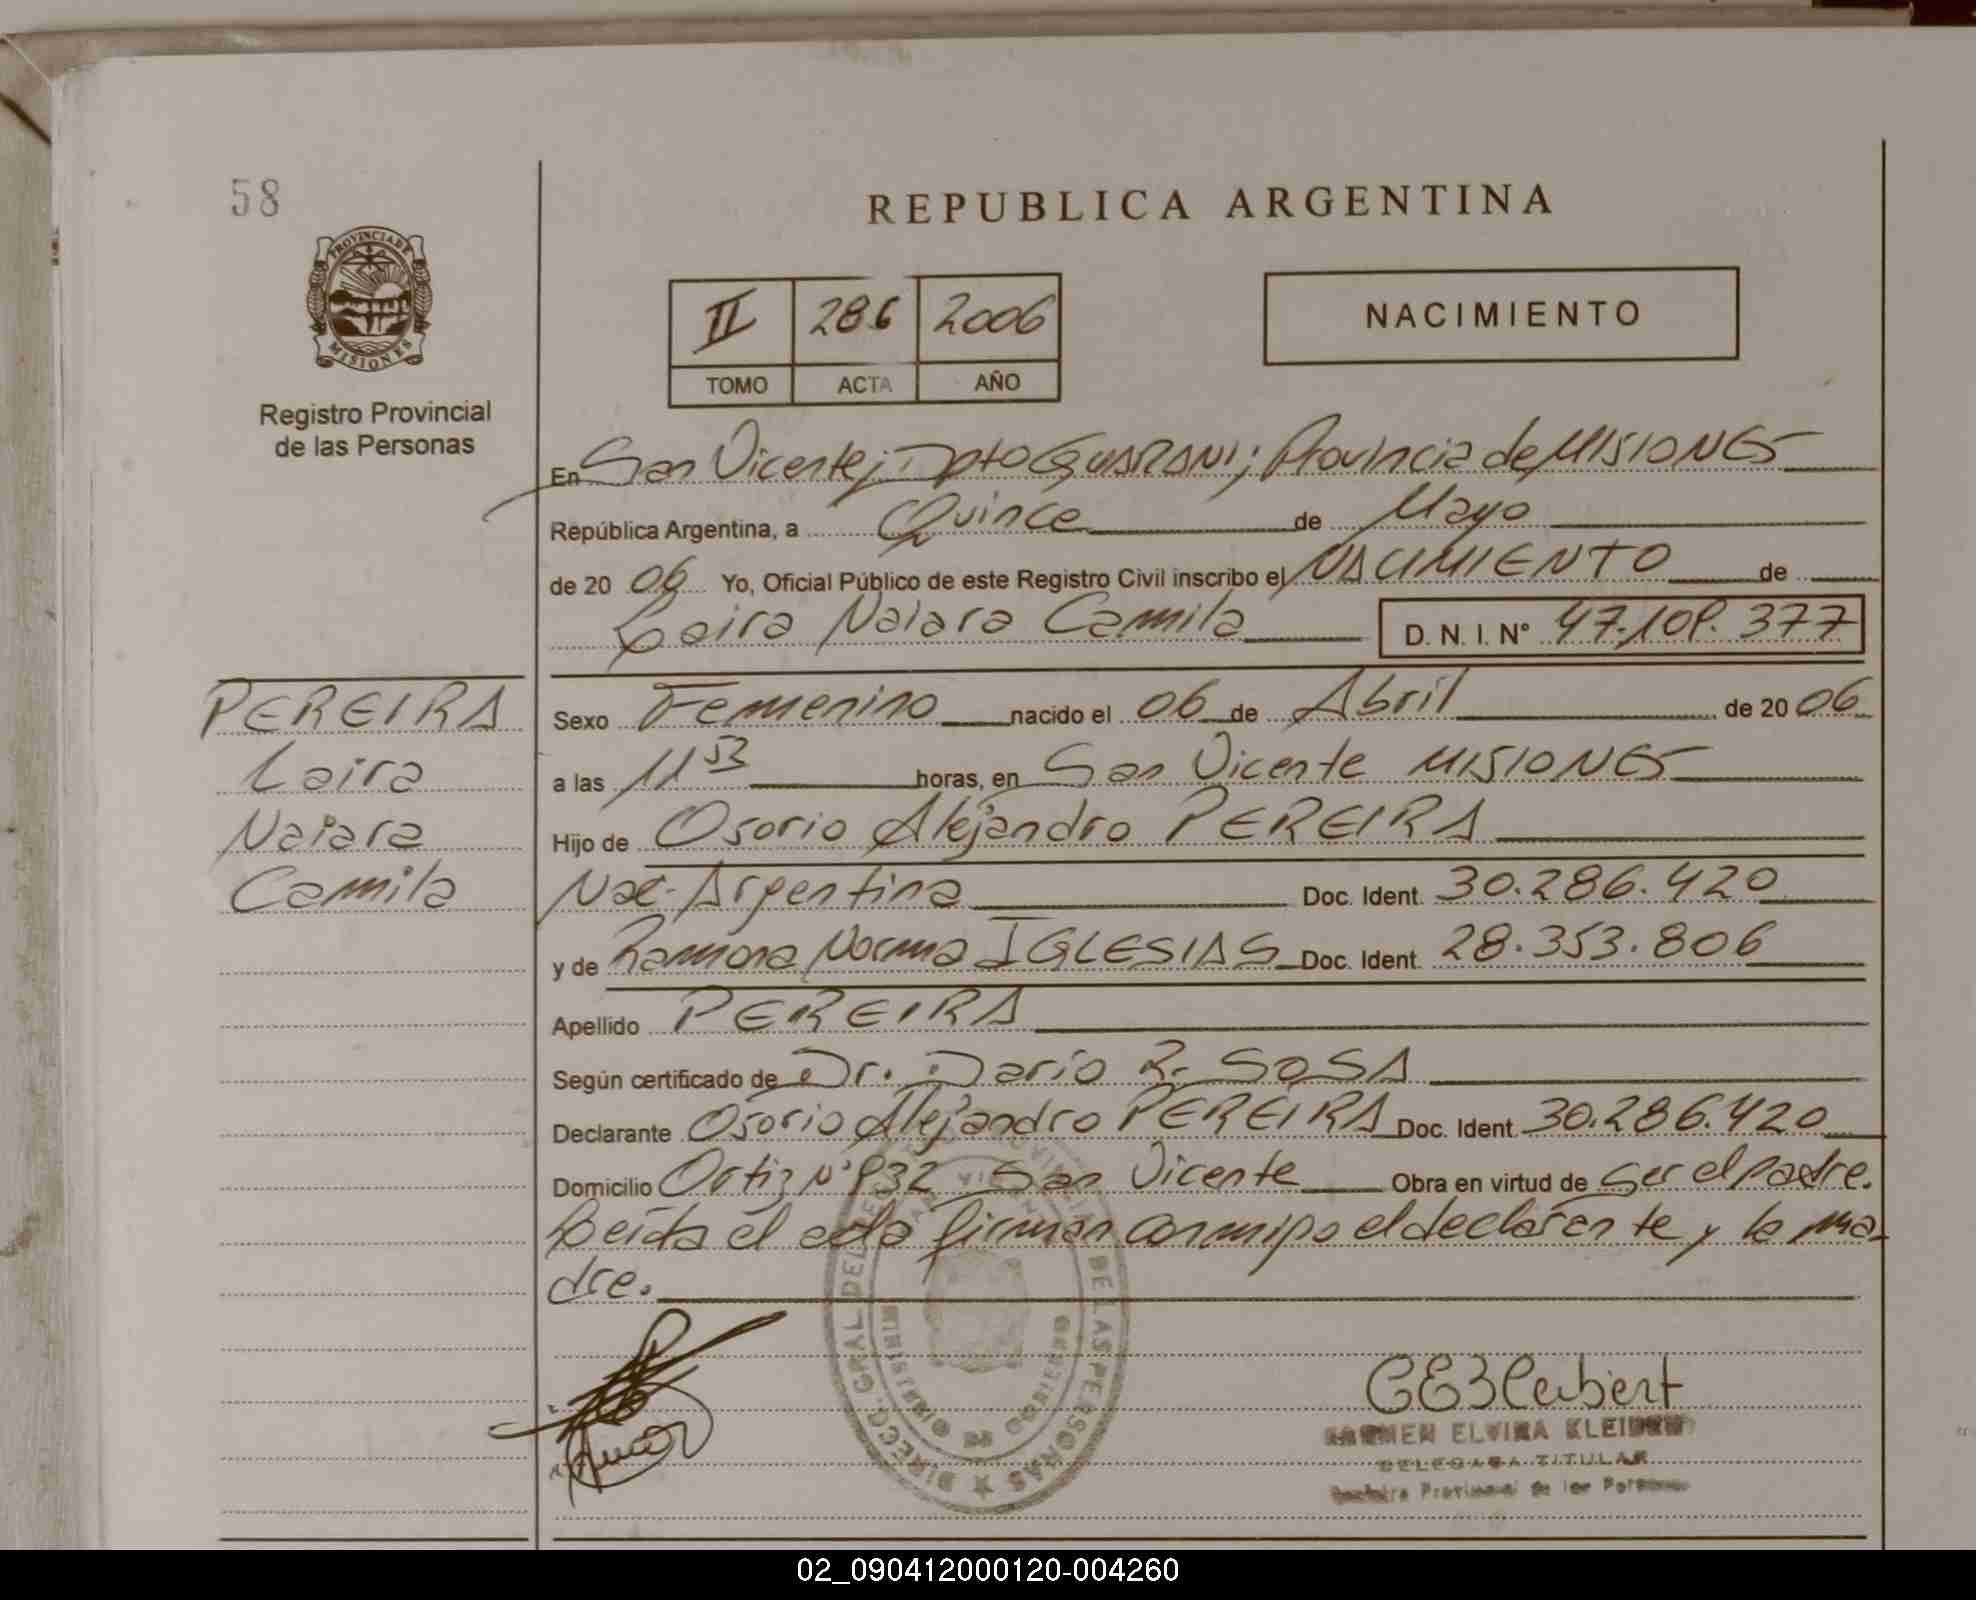 58
REPUBLICA ARGENTINA
PROVINCIA DE
MISIONES
Registro Provincial
de las Personas
II 286 2006
TOMO ACTA AÑO
NACIMIENTO
En San Vicente; Dpto GUARANI; Provincia de MISIONES
República Argentina, a Quince de Mayo
de 20 06 Yo, Oficial Público de este Registro Civil inscribo el NACIMIENTO de
Laira Naiara Camila D. N. I. N° 47.109.377
PEREIRA
Laira
Naiara
Camila
Sexo Femenino nacido el 06 de Abril de 20 06
a las 11 53 horas, en San Vicente MISIONES
Hijo de Osorio Alejandro PEREIRA
Nac. Argentina Doc. Ident. 30.286.420
y de Ramona Norma IGLESIAS Doc. Ident. 28.353.806
Apellido PEREIRA
Según certificado de Dr. Dario R. SOSA
Declarante Osorio Alejandro PEREIRA Doc. Ident. 30.286.420
Domicilio Ortiz N° 932 San Vicente Obra en virtud de ser el padre.
Leída el acta firman conmigo el declarante y la ma-
dre.
DIRECC. GRAL DEL DE LAS PERSONAS
MINISTERIO DE GOBIERNO
CEKleibert
CARMEN ELVIRA
DELEGADA TITULAR
Registro Provincial de las Personas
02_090412000120-004260